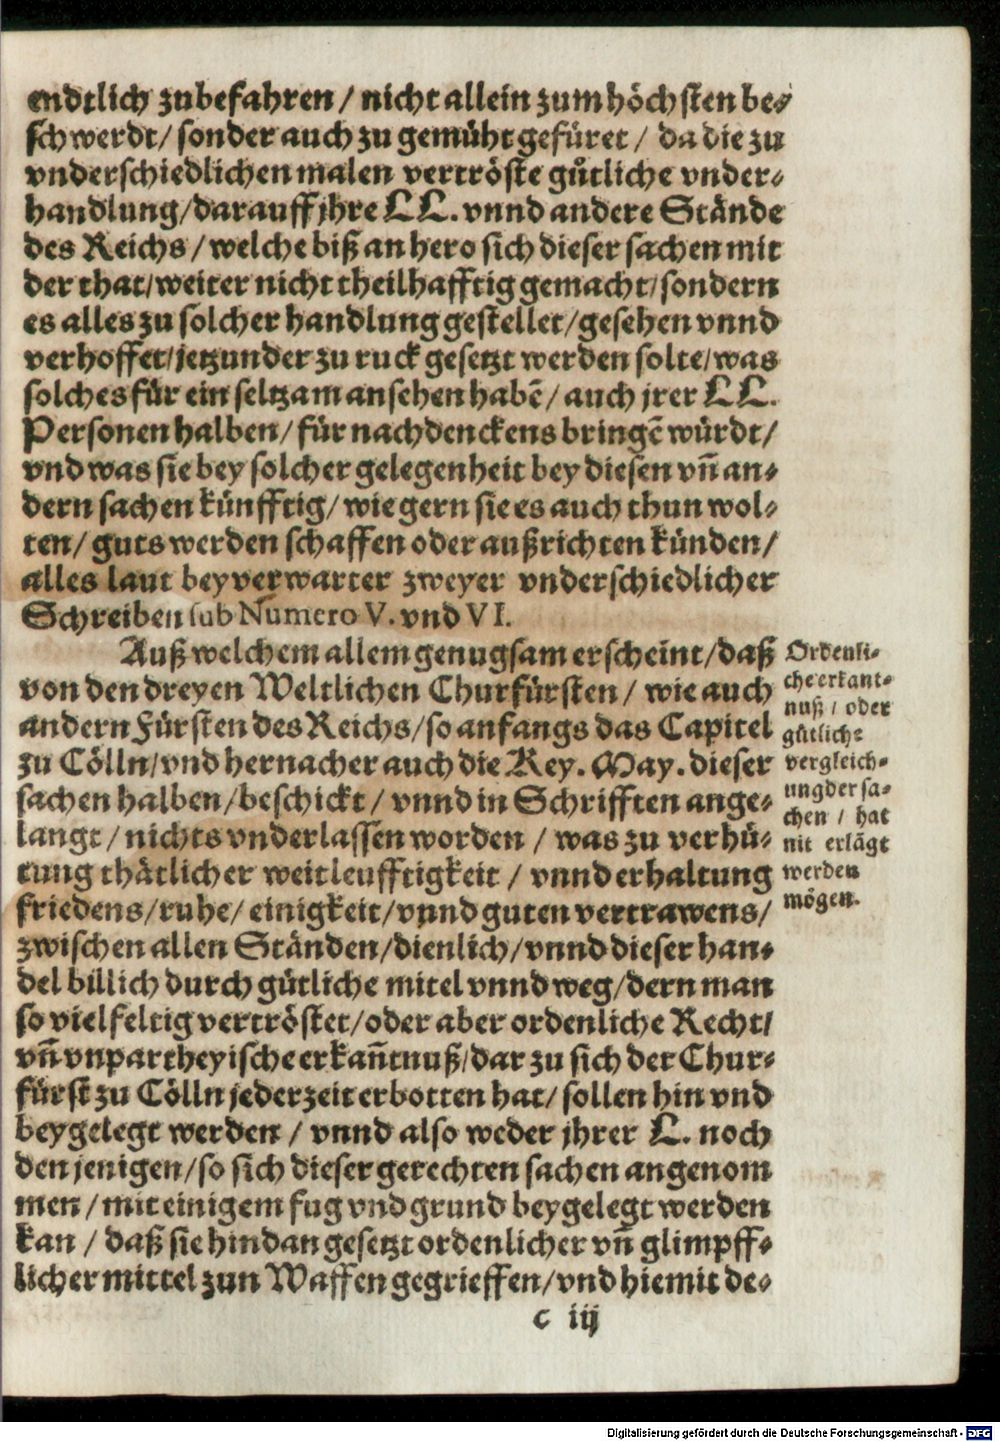 endtlich zubefahren / nicht allein zum höchsten be⸗
schwerdt / sonder auch zu gemüht gefüret / da die zu
vnderschiedlichen malen vertröste gůtliche vnder⸗
handlung / darauff jhre L L. vnnd andere Stände
des Reichs / welche biß anhero sich dieser sachen mit
der that / weiter nicht theilhafftig gemacht / sondern
es alles zu solcher handlung gestellet / gesehen vnnd
verhoffet / jetzunder zu ruck gesetzt werden solte / was
solches für ein seltzam ansehen habē / auch jrer L L.
Personen halben / für nachdenckens bringē würdt /
vnd was sie bey solcher gelegenheit bey diesen vñ an⸗
dern sachen künfftig / wie gern sie es auch thun wol⸗
ten / guts werden schaffen oder außrichten künden /
alles laut beyverwarter zweyer vnderschiedlicher
Schreiben sub Numero V. vnd VI.
Auß welchem allem genugsam erscheint / daß
von den dreyen Weltlichen Churfürsten / wie auch
andern Fürsten des Reichs / so anfangs das Capitel
zu Cölln / vnd hernacher auch die Key. May. dieser
sachen halben / beschickt / vnnd in Schrifften ange⸗
langt / nichts vnderlassen worden / was zu verhü⸗
tung thätlicher weitleufftigkeit / vnnd erhaltung
friedens / ruhe / einigkeit / vnnd guten vertrawens /
zwischen allen Ständen / dienlich / vnnd dieser han⸗
del billich durch gütliche mitel vnnd weg / dern man
so vielfeltig vertröstet / oder aber ordenliche Recht /
vñ vnpartheyische erkañtnuß / dar zu sich der Chur⸗
fürst zu Cölln jederzeit erbotten hat / sollen hin vnd
beygelegt werden / vnnd also weder jhrer L. noch
den jenigen / so sich dieser gerechten sachen angenom
men / mit einigem fug vnd grund beygelegt werden
kan / daß sie hindan gesetzt ordenlicher vñ glimpff⸗
licher mittel zun Waffen gegrieffen / vnd hiemit de⸗
c iij
Ordenli⸗
che erkant⸗
nuß / oder
gütlich⸗
vergleich⸗
ung der sa⸗
chen / hat
nit erlägt
werden
mögen.
Digitalisierung gefördert durch die Deutsche Forschungsgemeinschaft - DFG